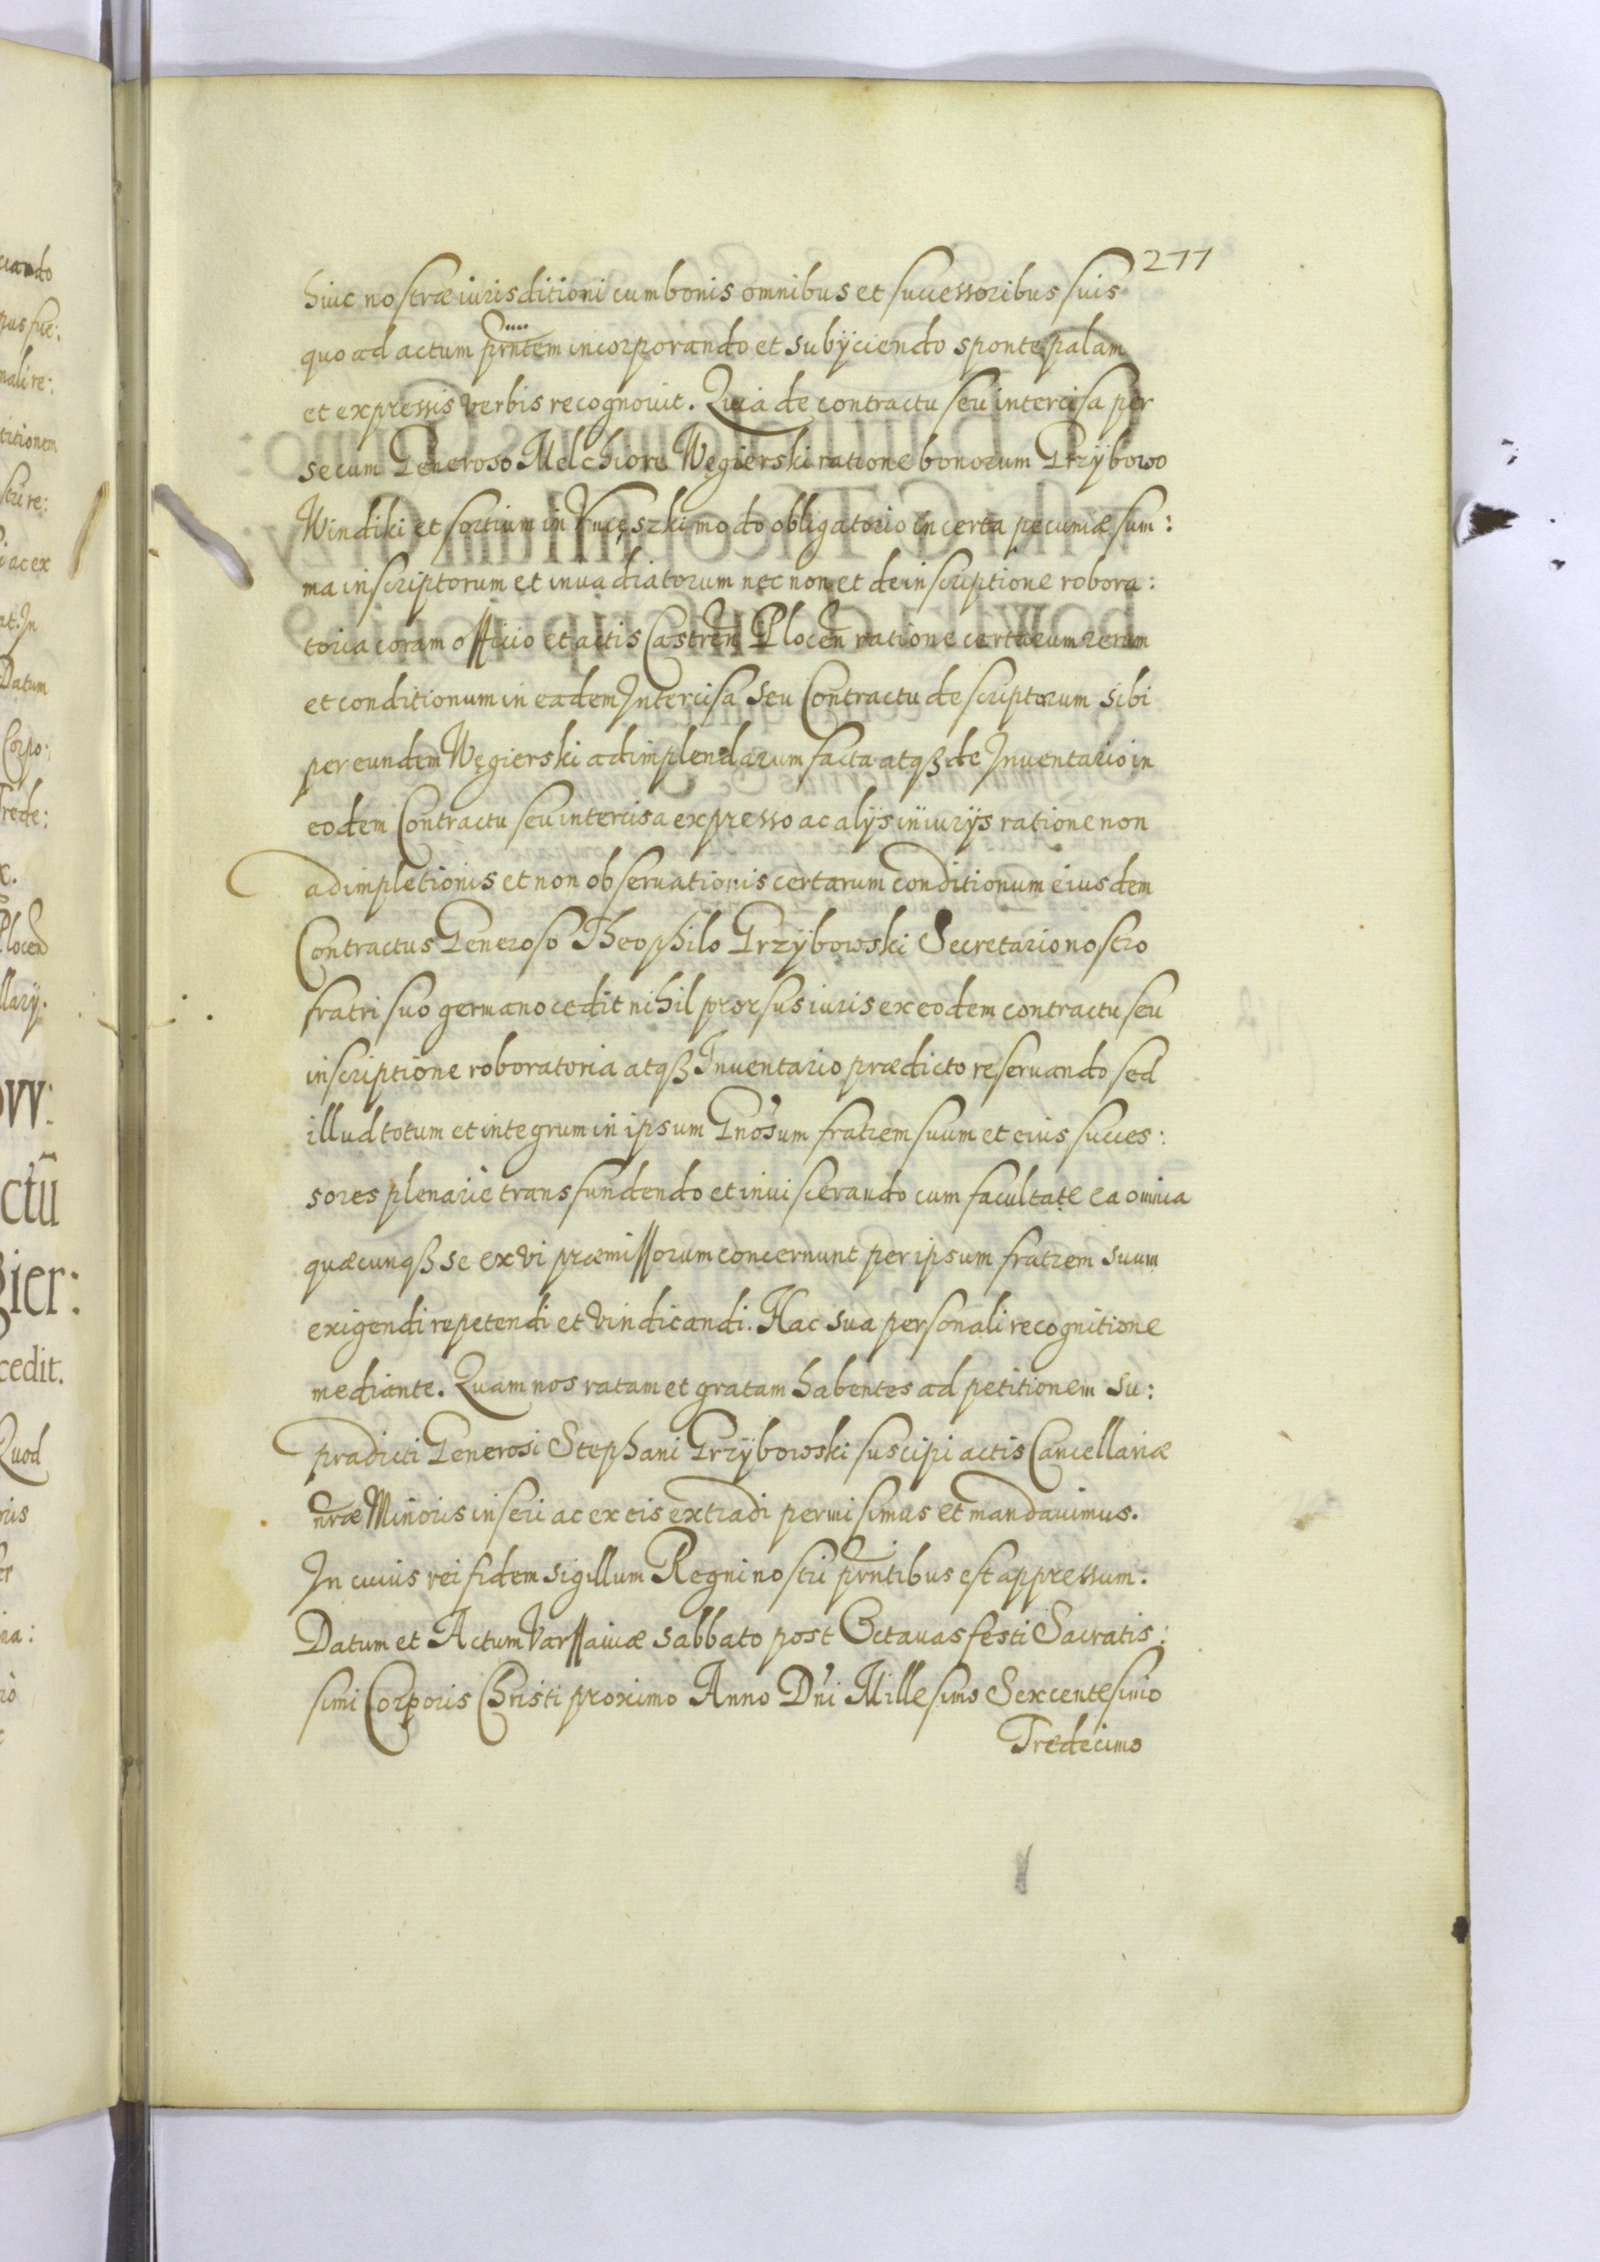 277
huic nostræ iurisditioni cum bonis omnibus et successoribus suis
quo ad actum prntem incorporando et subÿciendo sponte palam
et expressis verbis recognovit. Quia de contractu seu intercisa per
se cum Generoso Melchiore Węgierski ratione bonorum Grzÿbowo
Windiki et sortium in Kuceszki modo obligatorio in certa pecuniæ sum:
ma inscriptorum et inuadiatorum nec non et de inscriptione robora:
toria coram officio et actis Castren Plocen ratione certarum rerum
et conditionum in eadem Intercisa seu Contractu descriptorum sibi
per eundem Węgierski adimplendarum facta atqꝫ de Inuentario in
eodem Contractu seu intercisa expresso ac alÿs iniurÿs ratione non
adimpletionis et non obseruationis certarum conditionum eiusdem
Contractus Generoso Theophilo Grzÿbowski Secretario nostro
fratri suo germano cedit nihil prorsus iuris ex eodem contractu seu
inscriptione roboratoria atqꝫ Inuentario prædicto reseruando sed
illud totum et integrum in ipsum Gnosum fratrem suum et eius succes:
sores plenarie transfundendo et inuiscerando cum facultate ea omnia
quæcunqꝫ se ex vi præmissorum concernunt per ipsum fratrem suum
exigendi repetendi et vindicandi. Hac sua personali recognitione
mediante. Quam nos ratam et gratam habentes ad petitionem su:
pradicti Generosi Stephani Grzÿbowski suscipi actis Cancellariæ
nræ Minoris inseri ac ex eis extradi permisimus et mandauimus.
In cuius rei fidem sigillum Regni nostri prntibus est appressum.
Datum et Actum Varssauiæ Sabbato post Octauas festi Sacratis:
simi Corporis Christi proximo Anno Dni Millesimo Sexcentesimo
Tredecimo